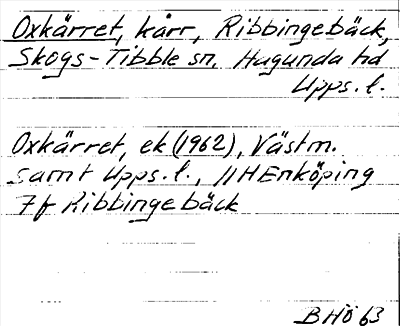 Oxkärret, kärr, Ribbingebäck,
Skogs-Tibble sn. Hagunda hd
Upps. l.
Oxkärret, ek (1962), Västm.
samt Upps. l., 11H Enköping
7f Ribbingebäck
BHÖ 63